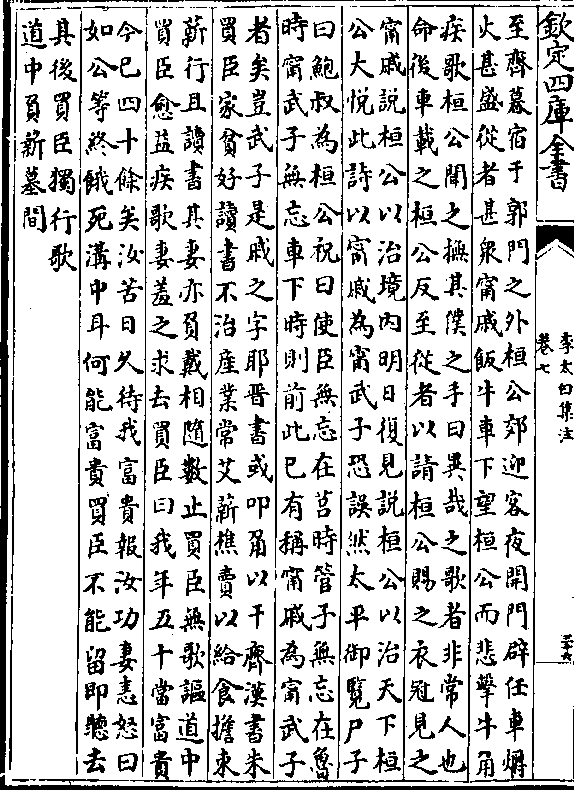 欽定四庫全書
李太白集注
卷七
至齊暮宿于郭門之外桓公郊迎客夜開門辟任車爝
火甚盛從者甚衆甯戚飯牛車下望桓公而悲擊牛角
疾歌桓公聞之撫其僕之手曰異哉之歌者非常人也
命後車載之桓公反至從者以請桓公賜之衣冠見之
甯戚說桓公以治境内明日復見說桓公以治天下桓
公大悦此詩以甯戚為甯武子恐誤然太平御覽尸子
曰鮑叔為桓公祝曰使臣無忘在莒時管子無忘在魯
時甯武子無忘車下時則前此已有稱甯戚為甯武子
者矣豈武子是戚之字耶晉書或叩角以干齊漢書朱
買臣家貧好讀書不治産業常艾薪樵賣以給食擔束
薪行且讀書其妻亦負戴相隨數止買臣無歌謳道中
買臣愈益疾歌妻羞之求去買臣曰我年五十當富貴
今已四十餘矣汝苦日久待我富貴報汝功妻恚怒曰
如公等終餓死溝中耳何能富貴買臣不能留即聽去
其後買臣獨行歌
道中負薪墓間